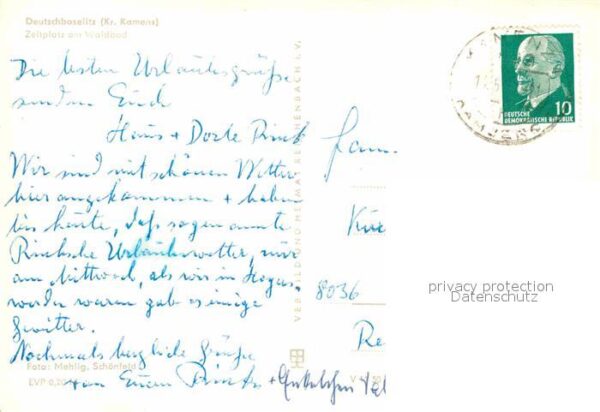 Deutschbaselitz (Kr. Kamenz)
Zeltplatz am Waldbad
Die besten Urlaubsgrüße
senden Euch
Hans + Dorle Rinck
Wir sind mit schönem Wetter
hier angekommen + haben
bis heute, das sogenannte
Rincksche Urlaubswetter, nur
am Mittwoch, als wir in
worden waren gab es einige
Gewitter.
Nochmals herzliche Grüße
von Euren Rincks +
Foto: Mehlig, Schönfeld
EVP 0,20
VERLAG BILD UND HEIMAT REICHENBACH I. V.
Fam.
8036
10
DEUTSCHE
DEMOKRATISCHE REPUBLIK
privacy protection
Datenschutz